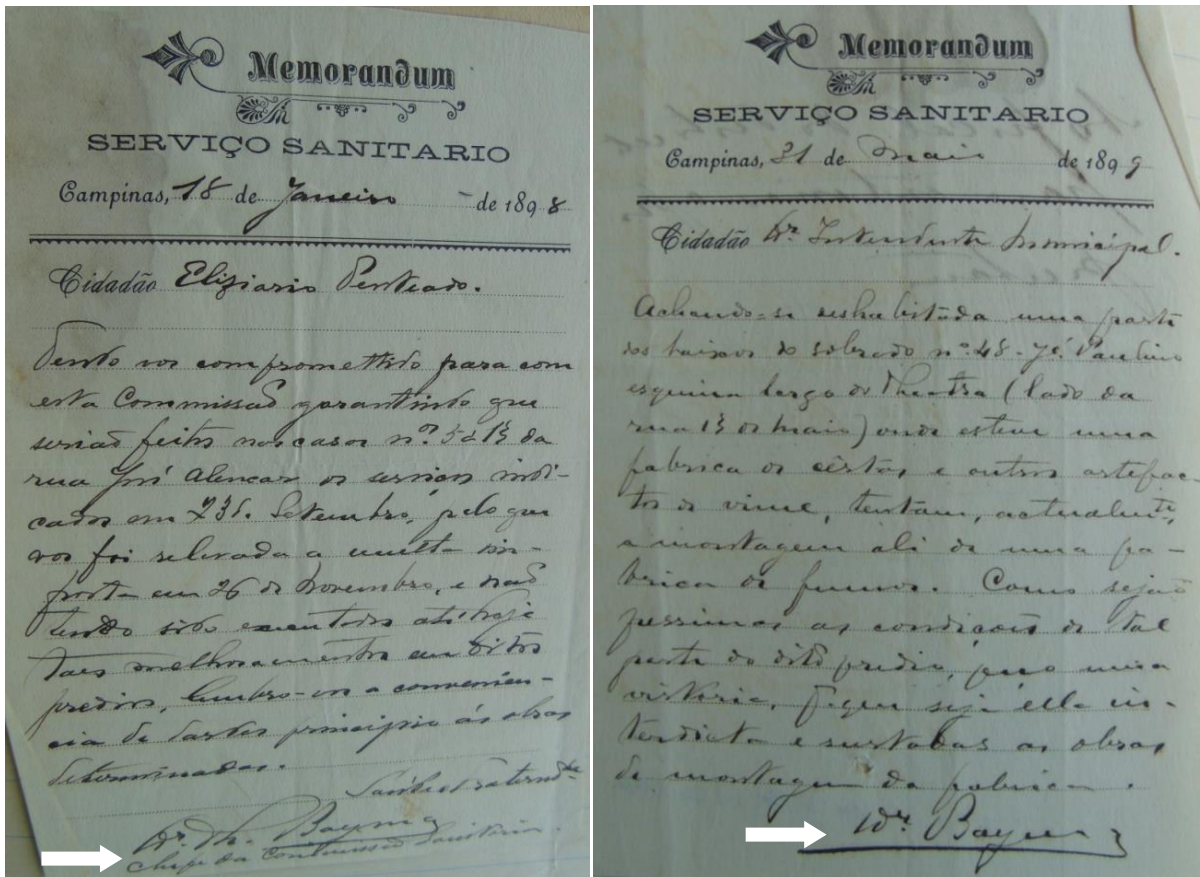 Memorandum
SERVIÇO SANITARIO
Campinas, 18 de Janeiro de 1898
Cidadão Eliziario Penteado.
Tendo vos compromettido para com
esta Commissão garantindo que
serião feitos nas casas nos 5 a 13 da
rua José Alencar os serviços indi-
cados em 23 de Setembro, pelo que
vos foi relevada a multa im-
posta em 26 de Novembro, e não
tendo sido executados até hoje
taes melhoramentos em ditos
predios, lembro-vos a convenien-
cia de dardes principio ás obras
determinadas.
Saúde e Fraternde
Dr. Th. Bayma
Chefe da Commissão Sanitaria.
Memorandum
SERVIÇO SANITARIO
Campinas, 31 de Maio de 1899
Cidadão Dr. Intendente Municipal.
Achando-se deshabitada uma parte
dos baixos do sobrado nº 48 - Jé. Paulino
esquina largo do Theatro (lado da
rua 13 de Maio) onde esteve uma
fabrica de cêstas e outros artefac-
tos de vime, tentam, actualmte,
a montagem ali de uma fa-
brica de fumos. Como sejão
pessimas as condições de tal
parte do dito predio, peço uma
vistoria, e que seja élla in-
terdicta e sustadas as obras
de montagem da fabrica.
Dr. Bayma